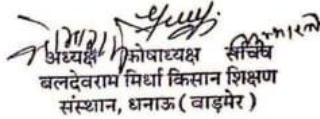 अध्यक्ष कोषाध्यक्ष सचिव
बलदेवराम मिर्धा किसान शिक्षण
संस्थान, धनाऊ ( बाड़मेर )